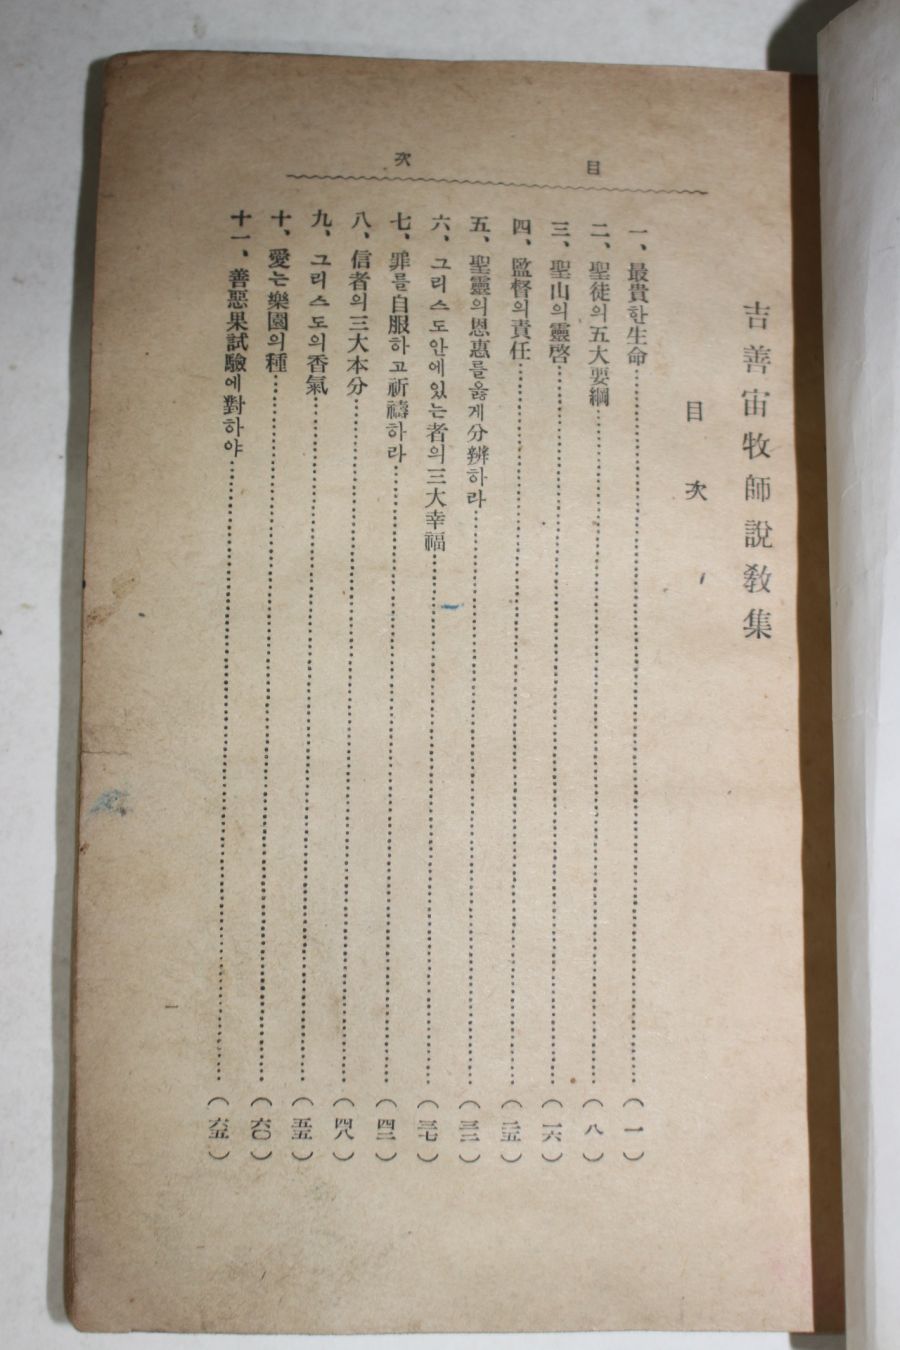 目次
吉善宙牧師說敎集
目次
一、最貴한生命……(一)
二、聖徒의五大要綱……(八)
三、聖山의靈啓……(一六)
四、監督의責任……(二五)
五、聖靈의恩惠를옳게分辨하라……(三二)
六、그리스도안에있는者의三大幸福……(三七)
七、罪를自服하고祈禱하라……(四二)
八、信者의三大本分……(四八)
九、그리스도의香氣……(五五)
十、愛는樂園의種……(六〇)
十一、善惡果試驗에對하야……(六五)
一